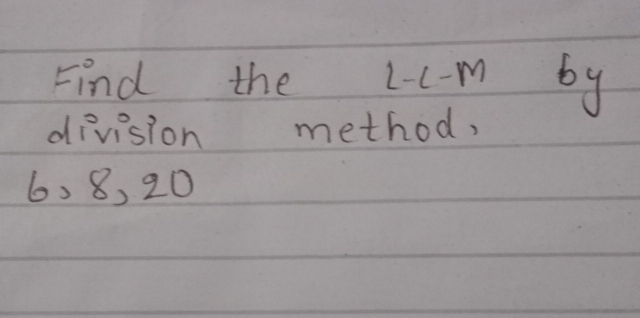 Find the L-C-M by
division method,
6, 8, 20